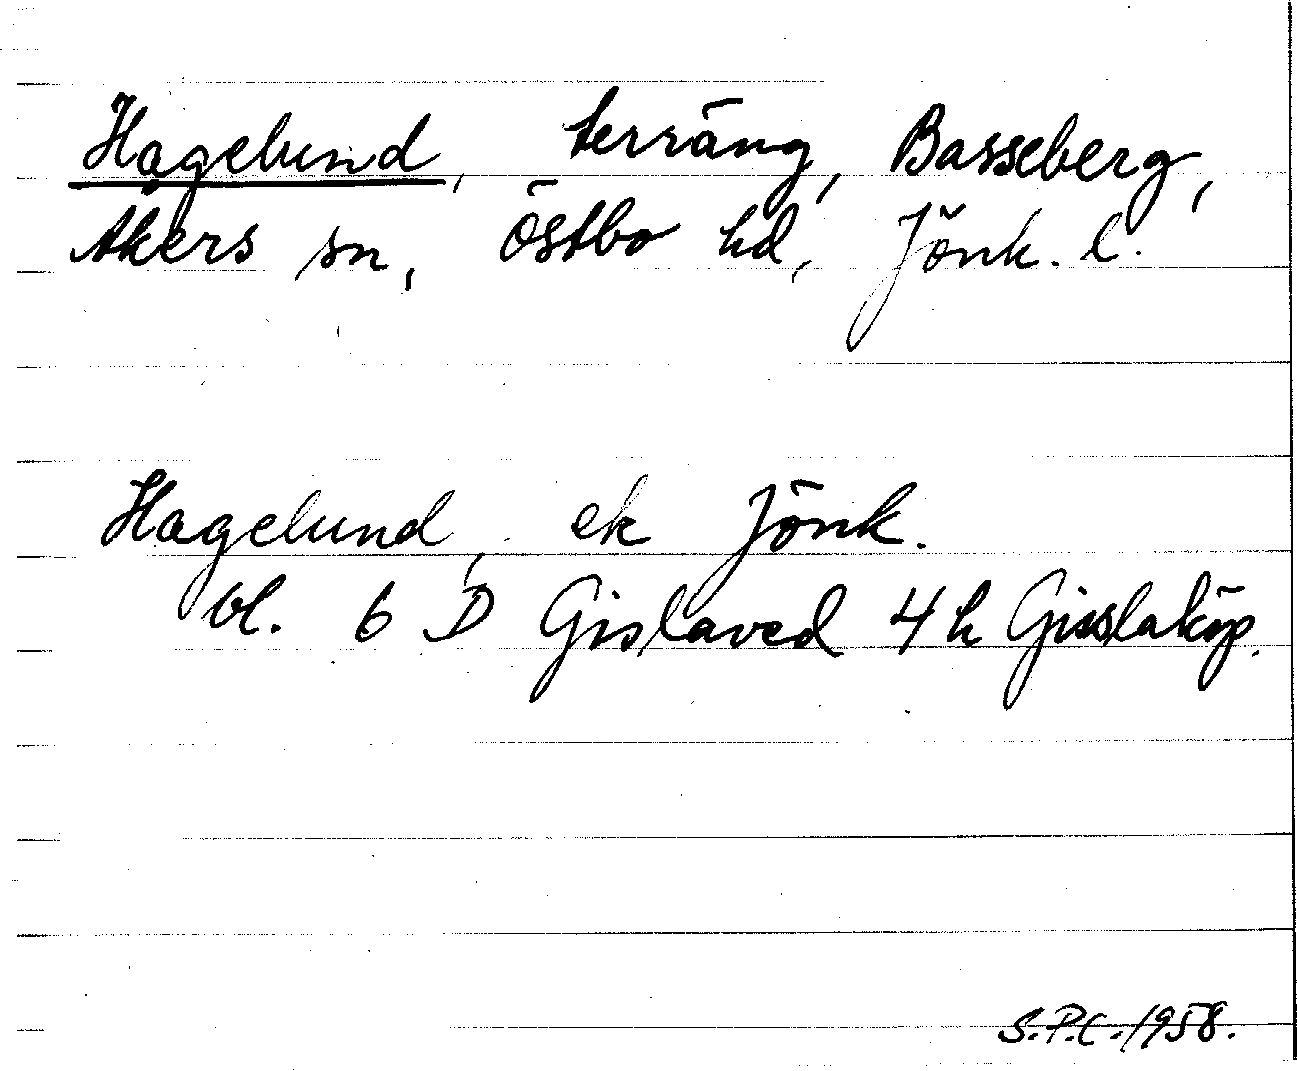 Hagelund, terräng, Basseberg,
Åkers sn, Östbo hd, Jönk. l.
Hagelund, ek Jönk.
bl. 6 D Gislaved 4 h Gisslaköp.
S.P.C. 1958.